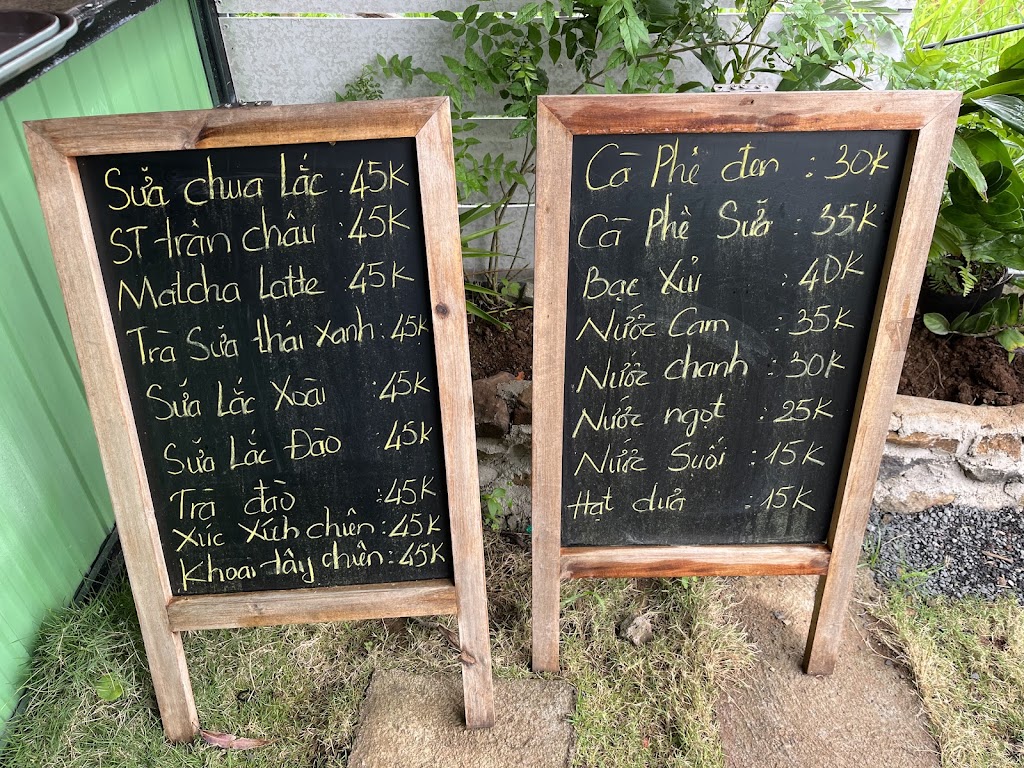 Sữa chua Lắc : 45K
ST trân châu : 45K
Matcha Latte : 45K
Trà Sữa thái xanh : 45K
Sữa Lắc Xoài : 45K
Sữa Lắc Đào : 45K
Trà đào : 45K
Xúc Xích chiên : 45K
Khoai tây chiên : 45K
Cà Phê đen : 30K
Cà Phê Sữa : 35K
Bạc Xỉu : 40K
Nước Cam : 35K
Nước chanh : 30K
Nước ngọt : 25K
Nước Suối : 15K
Hạt dưa : 15K